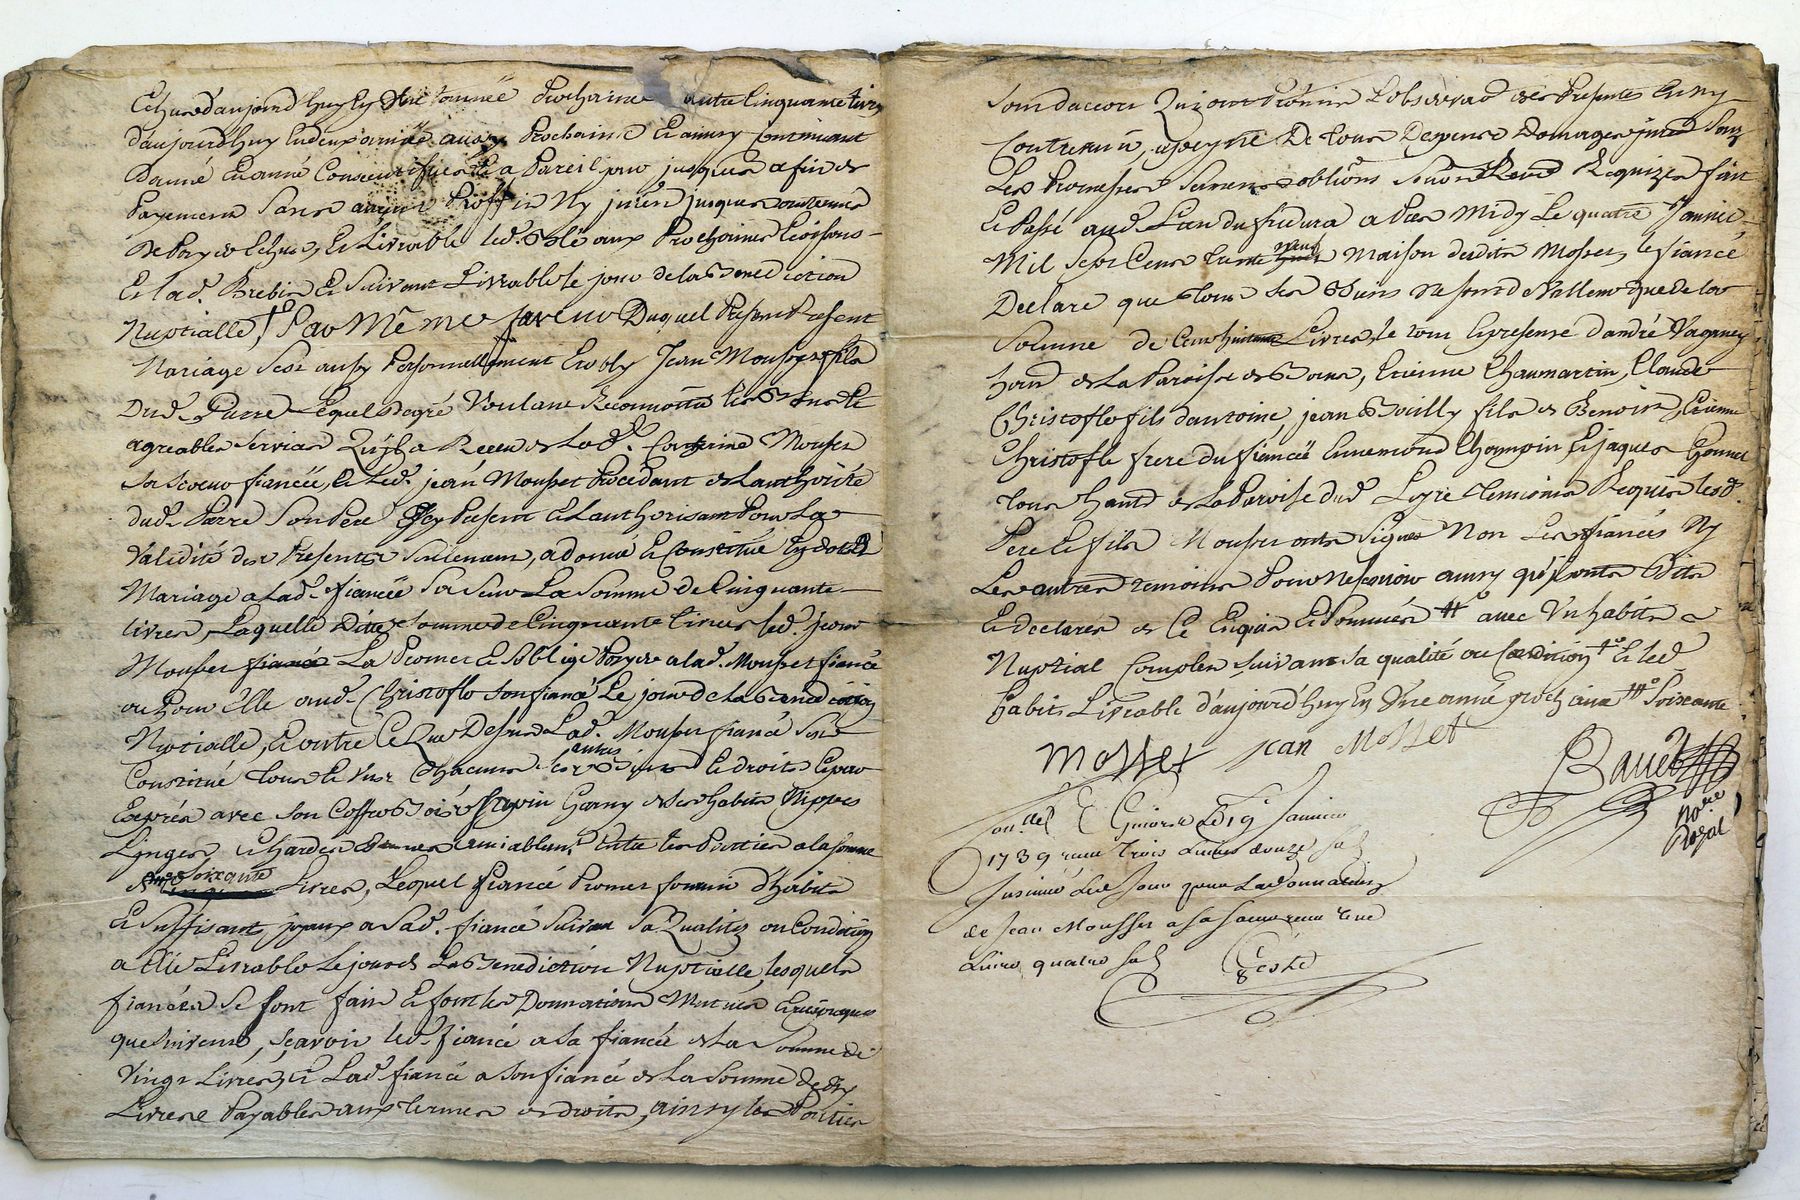 Echus d'aujourd'huy En Une année Prochaine autre Cinquante livres
d'aujourd'huy En deux années aussy Prochaine Et ainsy Continuant
d'année En année Consecutifvement a Pareil jour jusques a fin de
Payement Sans aucun Proffit Ny jnterêt jusques aux termes
de Payes Echus, Et Livrable led. Blé aux Prochaines Moissons
Et lad. Brebis Et Suivant Livrable le jour de la Benediction
Nuptialle, Par Même faveur Duquel Present
Mariage S'est aussy Personnellement Etably Jean Mousset fils
Dud. Pierre Lequel de gré Voulant Reconnoître les Bons Et
agreables Services Qu'il a Receu de Lad. Mousset
Sa Soeur fiancée, Et Led. jean Mousset Procedant de Lauthorité
dud. Pierre Son Pere Icy Present Et Lauthorisant Pour La
Validité des Presentes Seulement, a donné Et Constitué En dot Et
Mariage a Lad. fiancée Sa Soeur La Somme de Cinquante
livres, Laquelle ditte Somme de Cinquante Livres led. Jean
Mousset fiancé La Promet Et Oblige Payer a lad. Mousset fiancée
ou Pour Elle aud. Christoflo Son fiancé Le jour de la Benediction
Nuptialle, Et outre Ce Que Dessus Lad. Mousset fiancée S'est
Constitué Tous Et Uns Chacuns ses autres Biens Et droits Et par
Exprés avec Son Coffre Bois Sapin Garny de Ses habits Nippes
Linges, Et hardes Entre les Parties a la Somme
de Soixante Livres, Lequel fiancé Promet fournir d'habits
Et Suffisants joyaux a Sad. fiancée Suivant Sa Qualitez ou Condition
a Elle Livrable Le jour de La Benediction Nuptialle, lesquels
fiancés Se font fait Et font les Donnations Mutuës Et reciproques
que Suivent, Sçavoir led. fiancé a Sa fiancée de La Somme de
Vingt Livres, Et Lad. fiancée a Son fiancé de La Somme de dix
Livres Payables aux termes de droits, ainsy les Parties
Sont d'accord Qui ont Promis L'observaon des Presentes En Ny
Contrevenir, a peyne De tous Depens Domages jnterets Sous
Les Promesses Serment oblions Requizes fait
Et Passé aud. Lieu du a Pres Midy Le quatre Janvier
Mil Sept Cent trente neuf Maison desdits Mosset, le fiancé
Declare que tous Ses Biens Ne Sont de Valleur que de la
Somme de Livres, le tout En presence d'andré Vaganay
habt de La Paroisse de, Etienne Chaumartin, Claude
Christofle fils d'antoine, jean Bouilly fils de Benoist, Etienne
Christofle frere du fiancé Ennemond Champin, Et jaques Gonnet
tous habts de La Paroisse dud. Temoins Requis Lesd.
Pere Et fils Mousset ont Signés Non Les fiancés Ny
Les autres temoins Pour Ne Sçavoir ainsy qu'jls ont Dits
Et declarés de Ce Enquis Et Sommés avec Un habits
Nuptial Complet Suivant Sa qualité ou Condition Et led.
habits Livrable d'aujourd'huy En Une année prochaine Soixante
Mosset jean Mosset
Nore
Royal
Le 19 Janvier
1739 reçu trois Livres douze sols
jnsinué Led. Jour pour La donnation
de Jean Mousset a Sa Soeur reçu une
Livre quatre sols